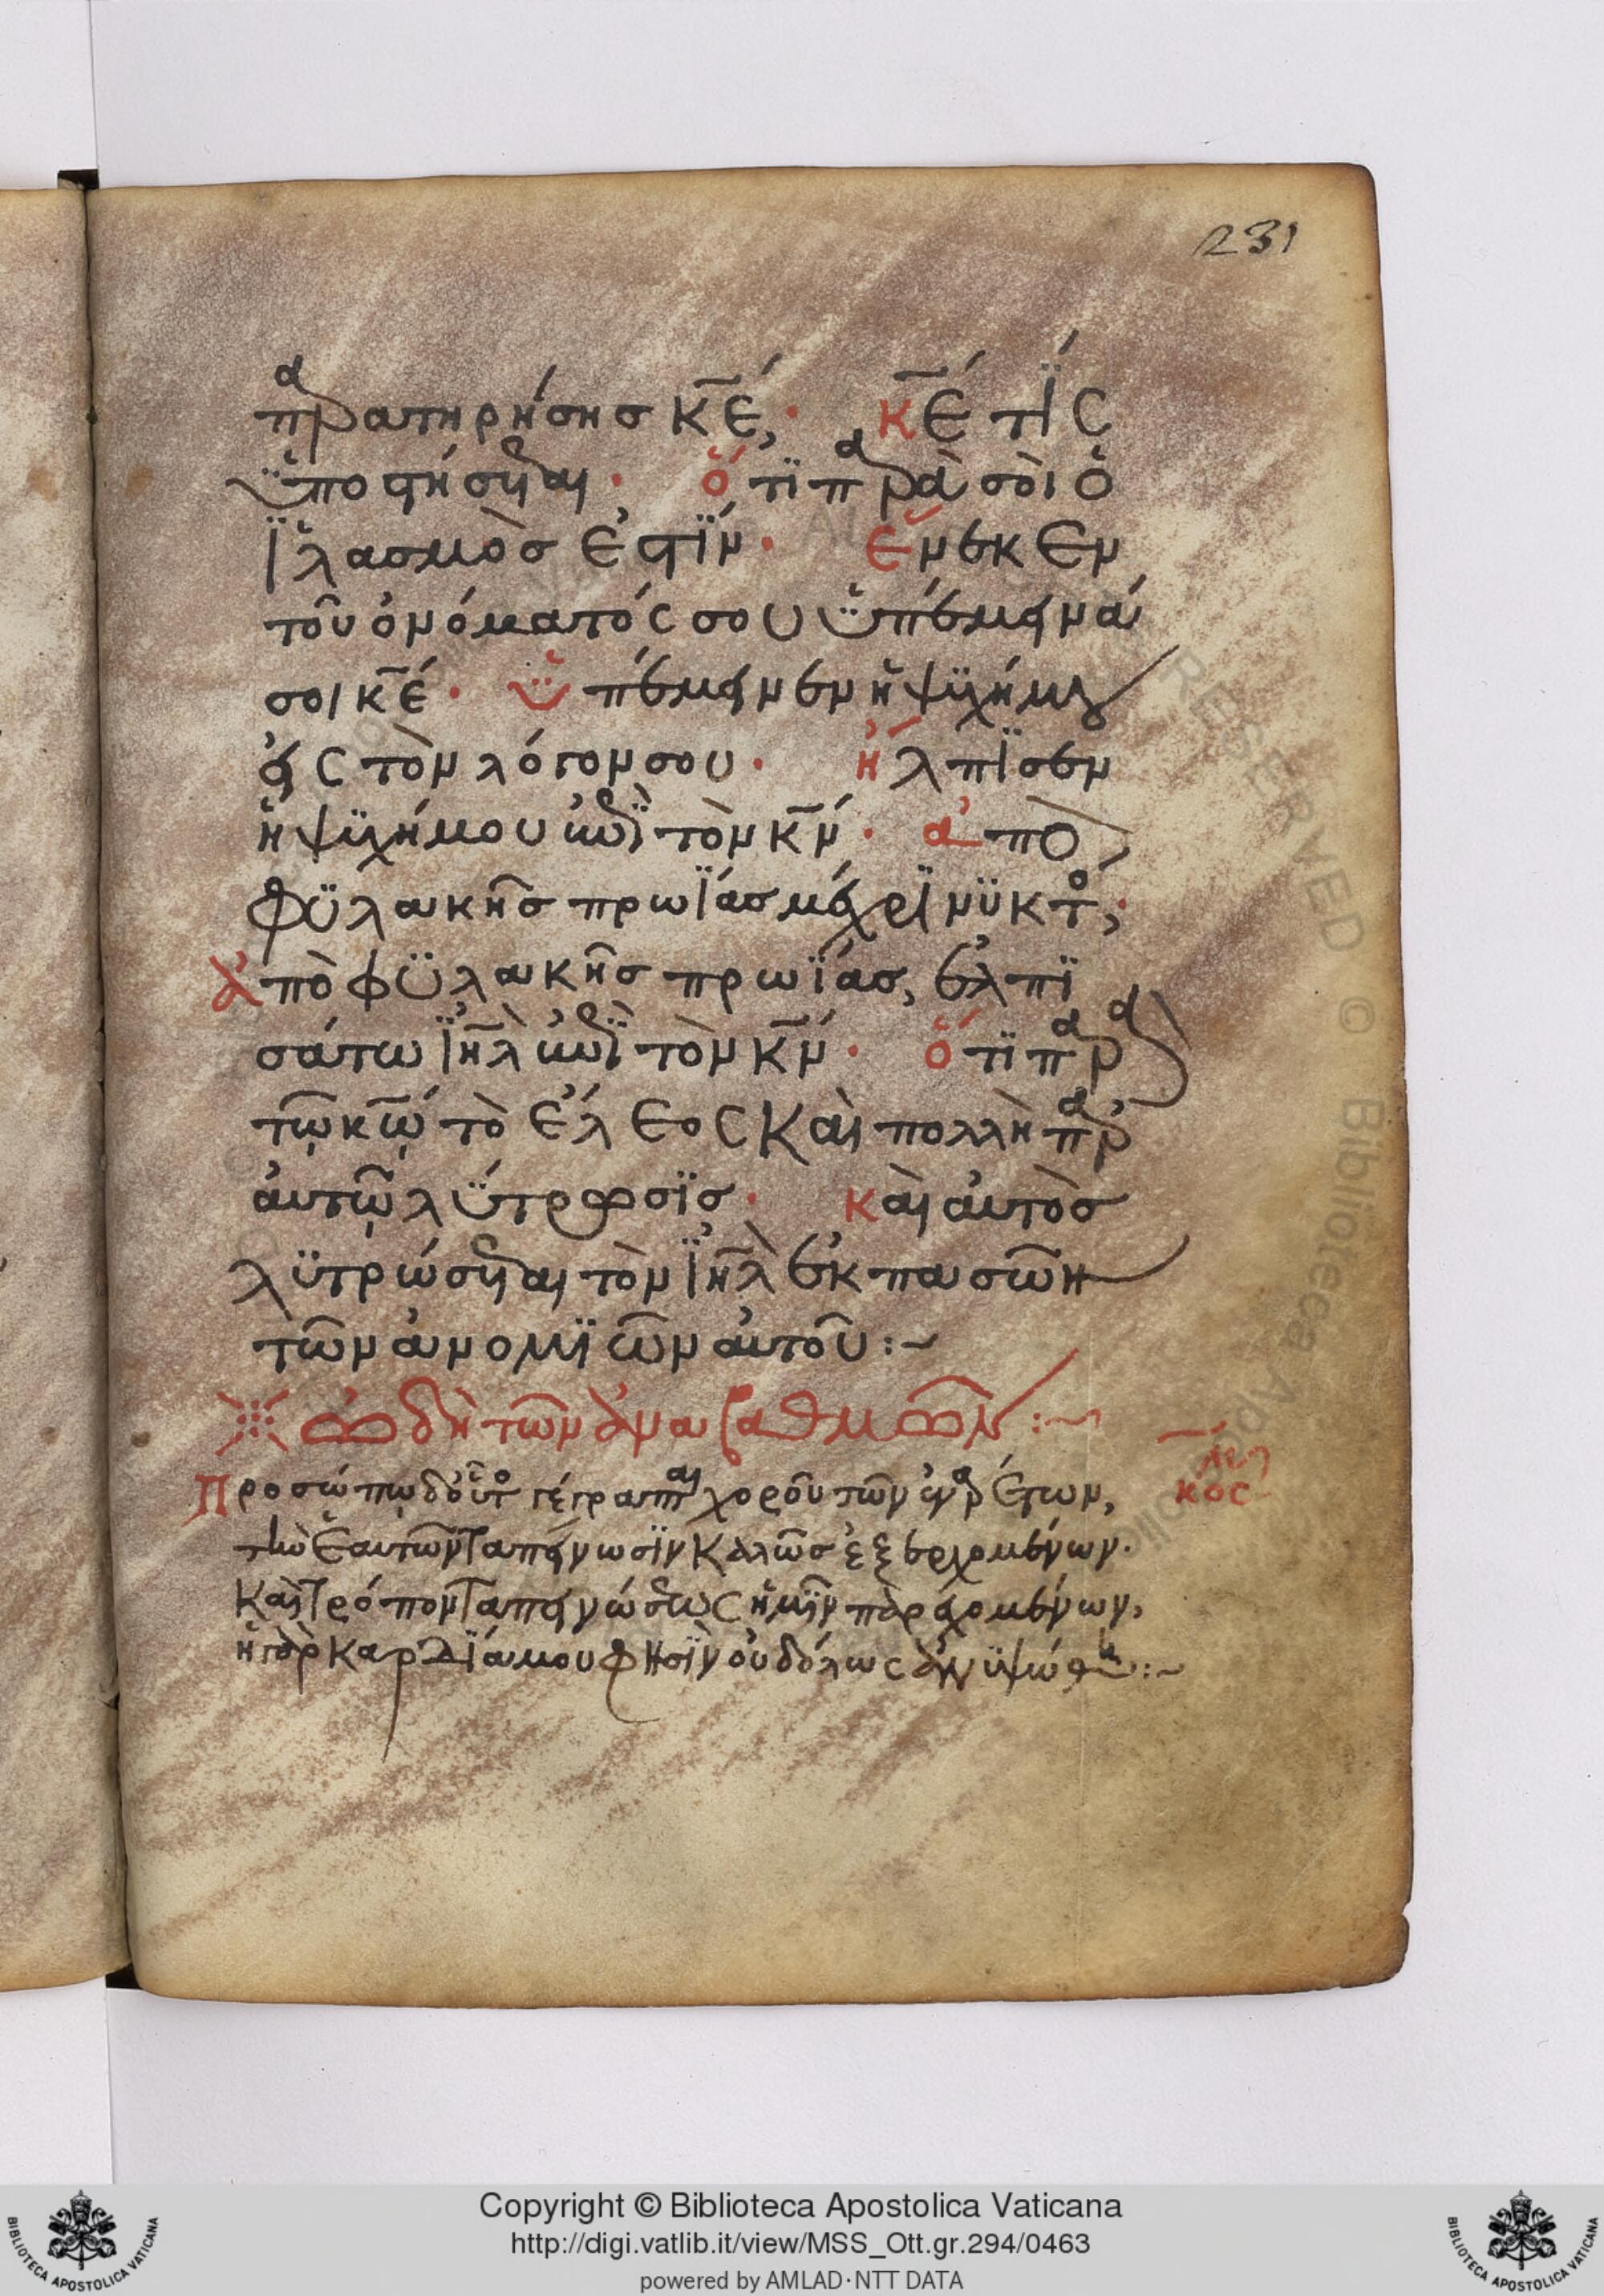 231
παρατηρήσης κ̅ε̅, · κ̅ε̅ τίς
ὑποστήσεται · ὅτι παρὰ σοὶ ὁ
ἱλασμὸς ἐστίν · ἕνεκεν
τοῦ ὀνόματός σου ὑπέμεινά
σοι κ̅ε̅ · ὑπέμεινεν ἡ ψυχή μου
εἰς τὸν λόγον σου · ἤλπισεν
ἡ ψυχή μου ἐπὶ τὸν κ̅ν̅ · ἀπὸ
φυλακῆς πρωΐας μέχρι νυκτός,
ἀπὸ φυλακῆς πρωΐας, ἐλπι
σάτω ἰ̅η̅λ̅ ἐπὶ τὸν κ̅ν̅ · ὅτι παρὰ
τῷ κ̅ω̅ τὸ ἔλεος καὶ πολλὴ παρ'
αὐτῷ λύτρωσις · καὶ αὐτὸς
λυτρώσεται τὸν ἰ̅η̅λ̅ ἐκ πασῶν
τῶν ἀνομιῶν αὐτοῦ :~
ὠδὴ τῶν ἀναβαθμῶν :~
Προσώπῳ δ' οὗτος γέγραπται χοροῦ τῶν ἐναρέτων,
τὴν ἑαυτῶν ταπείνωσιν καλῶς ἐξερχομένων.
καὶ τρόπον ταπεινώσεως ἡμῖν παρεχομένων,
ἡ γὰρ καρδία μου φησὶν οὐδόλως ἀνυψώθη :~
Copyright © Biblioteca Apostolica Vaticana
http://digi.vatlib.it/view/MSS_Ott.gr.294/0463
powered by AMLAD·NTT DATA
BIBLIOTECA APOSTOLICA VATICANA
BIBLIOTECA APOSTOLICA VATICANA